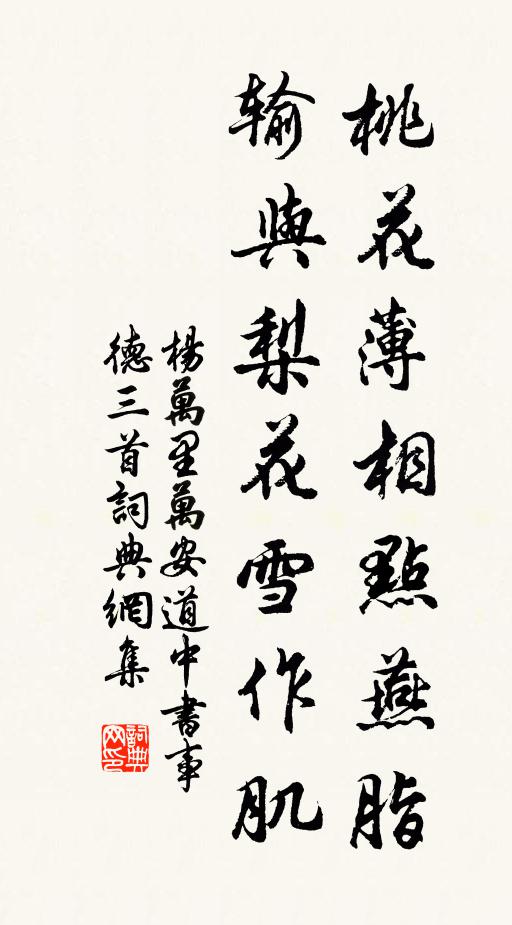 桃花薄相點燕脂
輸與梨花雪作肌
楊萬里萬安道中書事
德三首詞典網集
詞典网印